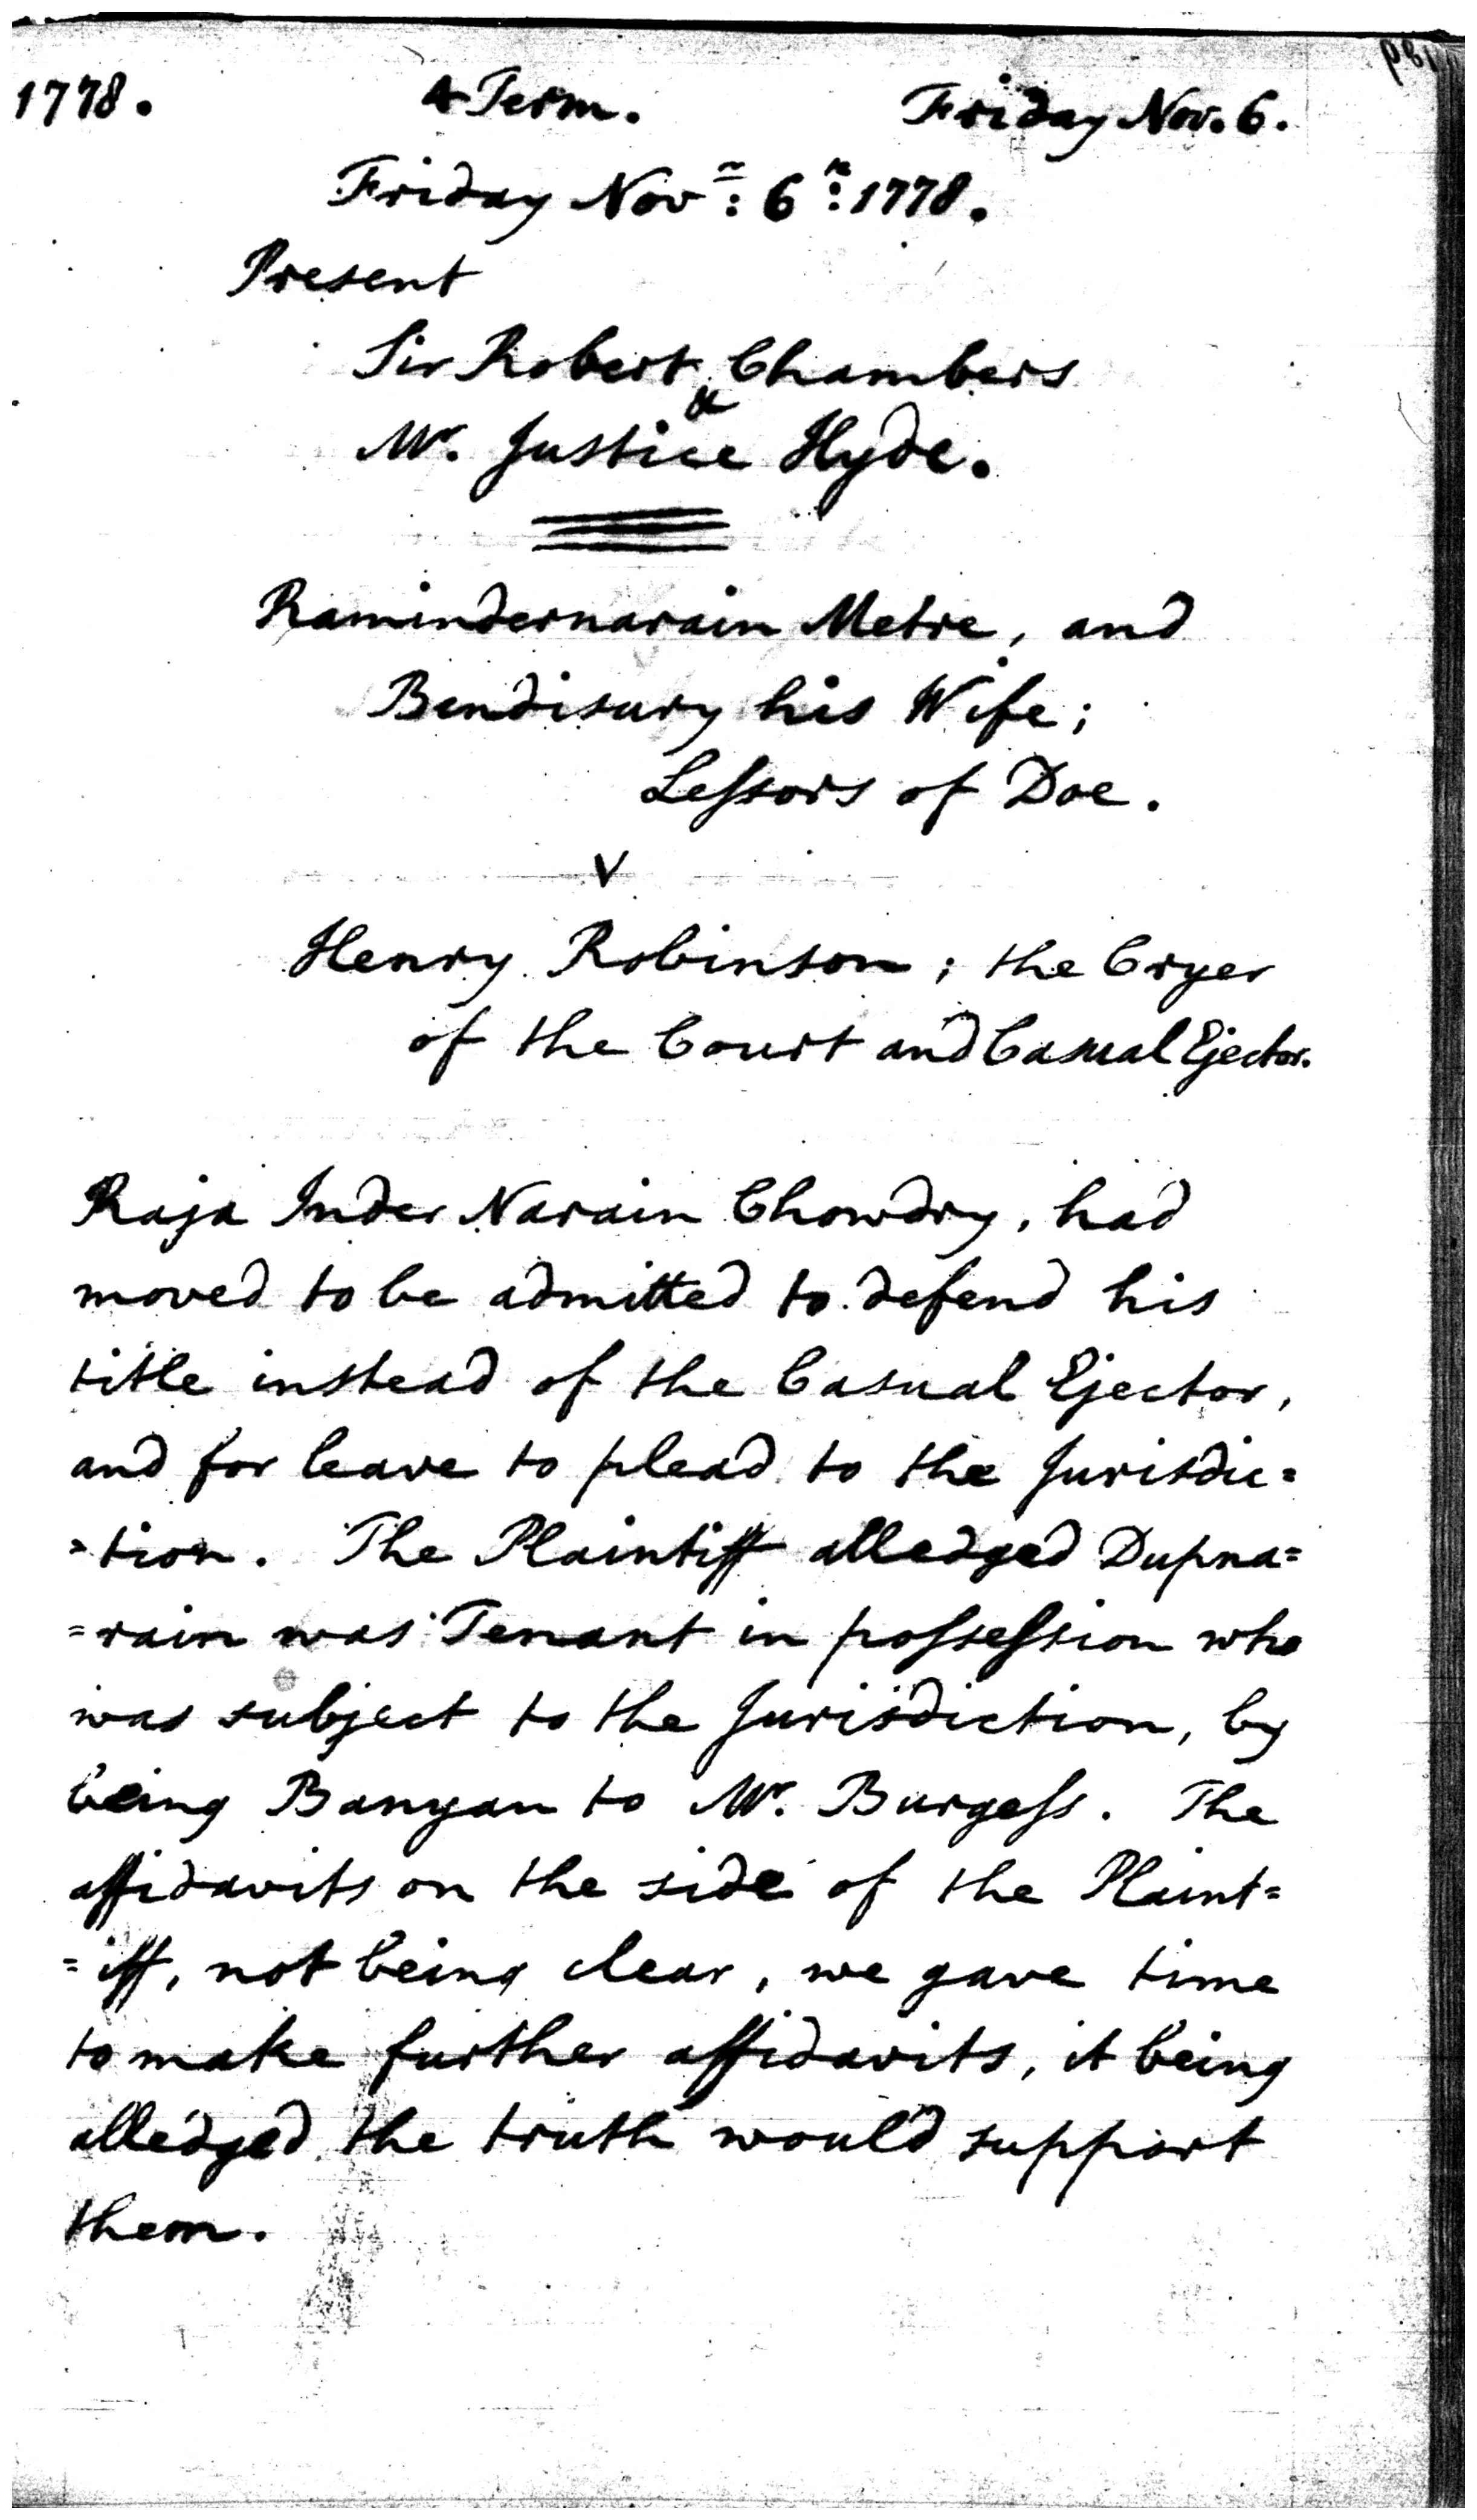 1778. 4 Term. Friday Nov. 6.
Friday Novr: 6th: 1778.
Present
Sir Robert Chambers
&
Mr. Justice Hyde.
Ramindernarain Metre, and
Bendisury his Wife;
Leſsors of Doe.
V
Henry Robinson; the Cryer
of the Court and Casual Ejector.
Raja Inder Narain Chowdry, had
moved to be admitted to defend his
title instead of the Casual Ejector,
and for leave to plead to the Jurisdic=
=tion. The Plaintiff alledged Dupna=
=rain was Tenant in poſseſsion who
was subject to the Jurisdiction, by
being Banyan to Mr. Burgeſs. The
affidavits on the side of the Plaint=
=iff, not being clear, we gave time
to make further affidavits, it being
alledged the truth would support
them.